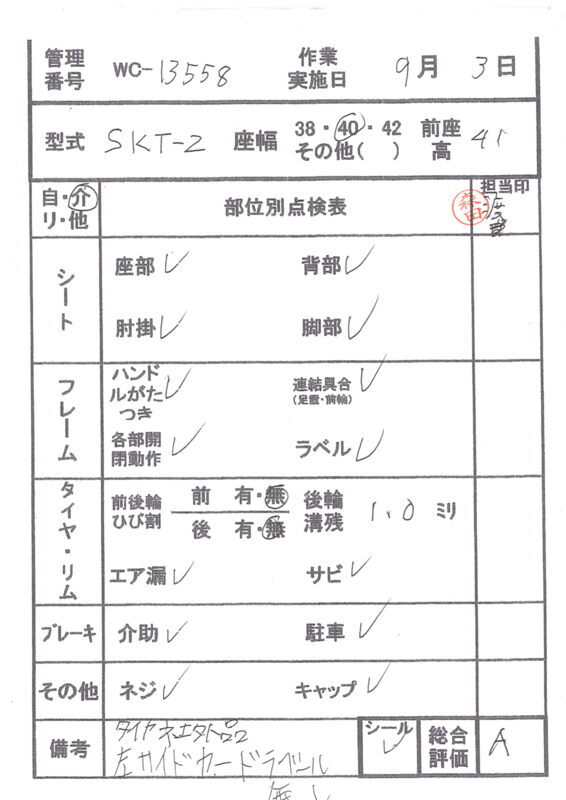 管理番号 WC-13558 作業実施日 9月 3日
型式 SKT-2 座幅 38・40・42 その他( ) 前座高 41
自・介 リ・他 部位別点検表 森田 担当印
シート 座部 ✓ 背部 ✓
肘掛 ✓ 脚部 ✓
フレーム ハンドルがたつき ✓ 連結具合(足置・前輪) ✓
各部開閉動作 ✓ ラベル ✓
タイヤ・リム 前後輪ひび割 前 有・無 後 有・無 後輪溝残 1.0 ミリ
エア漏 ✓ サビ ✓
ブレーキ 介助 ✓ 駐車 ✓
その他 ネジ ✓ キャップ ✓
備考 シール ✓ 総合評価 A
左サイドガードラベール
無し